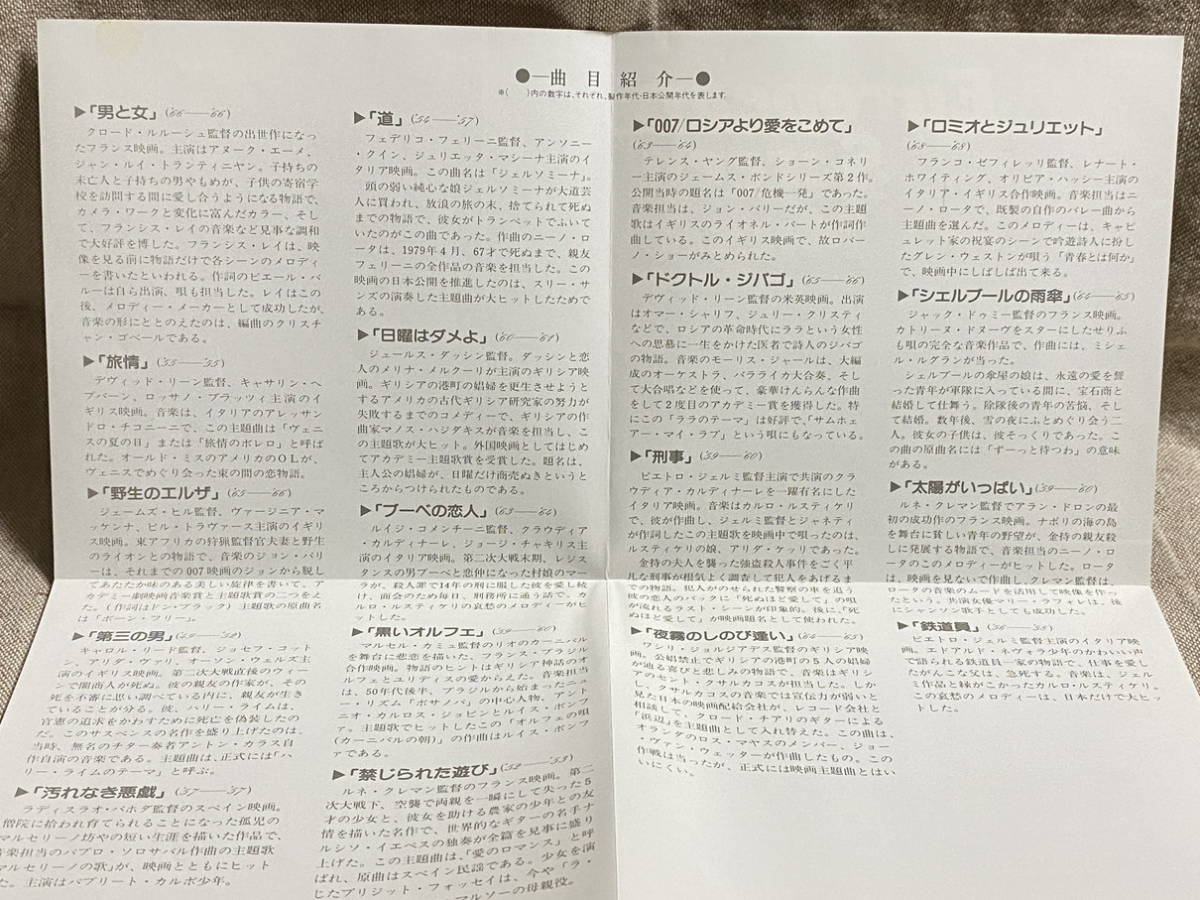 ●―曲目紹介―●
※( )内の数字は、それぞれ、製作年代・日本公開年代を表します。
▶「男と女」('66——'66)
クロード・ルルーシュ監督の出世作になっ
たフランス映画。主演はアヌーク・エーメ、
ジャン・ルイ・トランティニヤン。子持ちの
未亡人と子持ちの男やもめが、子供の寄宿学
校を訪問する間に愛し合うようになる物語で、
カメラ・ワークと変化に富んだカラー、そし
て、フランシス・レイの音楽など見事な調和
で大好評を博した。フランシス・レイは、映
像を見る前に物語だけで各シーンのメロディ
ーを書いたといわれる。作詞のピエール・バ
ルーは自ら出演、唄も担当した。レイはこの
後、メロディー・メーカーとして成功したが、
音楽の形にととのえたのは、編曲のクリスチ
ャン・ゴベールである。
▶「旅情」('55——'55)
デヴィッド・リーン監督、キャサリン・ヘ
プバーン、ロッサノ・ブラッツィ主演のイ
ギリス映画。音楽は、イタリアのアレッサン
ドロ・チコニーニで、この主題曲は「ヴェニ
スの夏の日」または「旅情のボレロ」と呼ば
れた。オールド・ミスのアメリカのOLが、
ヴェニスでめぐり会った束の間の恋物語。
▶「野生のエルザ」('65——'66)
ジェームズ・ヒル監督、ヴァージニア・マ
ッケンナ、ビル・トラヴァース主演のイギリ
ス映画。東アフリカの狩猟監督官夫妻と野生
のライオンとの物語で、音楽のジョン・バリ
ーは、それまでの007映画のジョンから脱し
てあたたか味のある美しい旋律を書いて、ア
カデミー劇映画音楽賞と主題歌賞の二つをえ
た。(作詞はドン・ブラック)主題歌の原曲名
は「ボーン・フリー」。
▶「第三の男」('49——'52)
キャロル・リード監督、ジョセフ・コット
ン、アリダ・ヴァリ、オーソン・ウェルズ主
演のイギリス映画。第二次大戦直後のウィー
ンで闇商人が死ぬ。彼の親友の作家が、その
死を不審に思い調べている内に、親友が生き
ていることが分る。彼、ハリー・ライムは、
官憲の追求をかわすために死亡を偽装したの
だ。このサスペンスの名作を盛り上げたのは、
当時、無名のチター奏者アントン・カラス自
作自演の音楽である。主題曲は、正式には「ハ
リー・ライムのテーマ」と呼ぶ。
▶「汚れなき悪戯」('57——'57)
ラディスラオ・バホダ監督のスペイン映画。
僧院に拾われ育てられることになった孤児の
マルセリーノ坊やの短い生涯を描いた作品で、
音楽担当のパブロ・ソロサバル作曲の主題歌
マルセリーノの歌」が、映画とともにヒット
た。主演はパブリート・カルボ少年。
▶「道」('54——'57)
フェデリコ・フェリーニ監督、アンソニー
・クイン、ジュリエッタ・マシーナ主演のイ
タリア映画。この曲名は「ジェルソミーナ」。
頭の弱い純心な娘ジェルソミーナが大道芸
人に買われ、放浪の旅の末、捨てられて死ぬ
までの物語で、彼女がトランペットでふいて
いたのがこの曲であった。作曲のニーノ・ロ
ータは、1979年4月、67才で死ぬまで、親友
フェリーニの全作品の音楽を担当した。この
映画の日本公開を推進したのは、スリー・サ
ンズの演奏した主題曲が大ヒットしたためで
ある。
▶「日曜はダメよ」('60——'61)
ジュールス・ダッシン監督。ダッシンと恋
人のメリナ・メルクーリが主演のギリシア映
画。ギリシアの港町の娼婦を更生させようと
するアメリカの古代ギリシア研究家の努力が
失敗するまでのコメディーで、ギリシアの作
曲家マノス・ハジダキスが音楽を担当し、こ
の主題歌が大ヒット。外国映画としてはじめ
てアカデミー主題歌賞を受賞した。題名は、
主人公の娼婦が、日曜だけ商売ぬきというと
ころからつけられたものである。
▶「ブーベの恋人」('63——'64)
ルイジ・コメンチーニ監督、クラウディア
・カルディナーレ、ジョージ・チャキリス主
演のイタリア映画。第二次大戦末期、レジス
タンスの男ブーベと恋仲になった村娘のマー
ラが、殺人罪で14年の刑に服した彼を愛し続
け、面会のため毎日、刑務所に通う話で、カ
ルロ・ルスティケリの哀愁のメロディーがヒ
ットした。
▶「黒いオルフェ」('59——'60)
マルセル・カミュ監督のリオのカーニバル
を舞台に悲恋を描いた、フランス・ブラジル
合作映画。物語のヒントはギリシア神話のオ
ルフェとユリディスの愛からえた。音楽担当
は、50年代後半、ブラジルから始まったニュ
ー・リズム「ボサノバ」の中心人物、アント
ニオ・カルロス・ジョビンとルイス・ボンフ
ァ。主題歌でヒットしたこの「オルフェの唄
(カーニバルの朝)」の作曲はルイス・ボンフ
ァである。
▶「禁じられた遊び」('52——'53)
ルネ・クレマン監督のフランス映画。第二
次大戦下、空襲で両親を一瞬にして失った5
才の少女と、彼女を助ける農家の少年との友
情を描いた名作で、世界的なギターの名手ナ
ルシソ・イエペスの独奏が全篇を見事に盛り
上げた。この主題曲は、「愛のロマンス」と呼
ばれ、原曲はスペイン民謡である。少女を演
じたブリジット・フォッセイは、今や「ラ・
マルソーの母親役。
▶「007/ロシアより愛をこめて」
('63——'64)
テレンス・ヤング監督、ショーン・コネリ
ー主演のジェームス・ボンドシリーズ第2作。
公開当時の題名は「007/危機一発」であった。
音楽担当は、ジョン・バリーだが、この主題
歌はイギリスのライオネル・バートが作詞作
曲している。このイギリス映画で、故ロバー
ト・ショーがみとめられた。
▶「ドクトル・ジバゴ」('65——'66)
デヴィッド・リーン監督の米英映画。出演
はオマー・シャリフ、ジュリー・クリスティ
などで、ロシアの革命時代にララという女性
への思慕に一生をかけた医者で詩人のジバゴ
の物語。音楽のモーリス・ジャールは、大編
成のオーケストラ、バラライカ大合奏、そし
て大合唱などを使って、豪華けんらんな作曲
をして2度目のアカデミー賞を獲得した。特
にこの「ララのテーマ」は好評で、「サムホェ
アー・マイ・ラブ」という唄にもなっている。
▶「刑事」('59——'60)
ピエトロ・ジェルミ監督主演で共演のクラ
ウディア・カルディナーレを一躍有名にした
イタリア映画。音楽はカルロ・ルスティケリ
で、彼が作曲し、ジェルミ監督とジャネティ
が作詞したこの主題歌を映画中で唄ったのは、
ルスティケリの娘、アリダ・ケッリであった。
金持の夫人を襲った強盗殺人事件をごく平
凡な刑事が根気よく調査して犯人をあげるま
での物語。犯人がのせられた警察の車を追う
彼の恋人のバックに「死ぬほど愛して」の唄
が流れるラスト・シーンが印象的。後に、「死
ぬほど愛して」が映画題名として使われた。
▶「夜霧のしのび逢い」('64——'65)
ワシリ・ジョルジアデス監督のギリシア映
画。公娼禁止でギリシアの港町の5人の娼婦
が辿る喜びと悲しみの物語で、音楽はギリシ
アのセント・クサルカコスが担当した。しか
し、クサルカコスの音楽では宣伝力が弱いと
見た日本の映画配給会社が、レコード会社と
相談して、クロード・チアリのギターによる
「浜辺」を主題曲として入れ替えた。この曲は、
オランダのロス・マヤスのメンバー、ジョー
・ヴァン・ウェッターが作曲したもの。この
作戦は当ったが、正式には映画主題曲とはい
いにくい。
▶「ロミオとジュリエット」
('68——'68)
フランコ・ゼフィレッリ監督、レナート・
ホワイティング、オリビア・ハッシー主演の
イタリア・イギリス合作映画。音楽担当はニ
ーノ・ロータで、既製の自作のバレー曲から
主題曲を選んだ。このメロディーは、キャピ
ュレット家の祝宴のシーンで吟遊詩人に扮し
たグレン・ウェストンが唄う「青春とは何か」
で、映画中にしばしば出て来る。
▶「シェルブールの雨傘」('64——'65)
ジャック・ドゥミー監督のフランス映画。
カトリーヌ・ドヌーヴをスターにしたせりふ
も唄の完全な音楽作品で、作曲には、ミシェ
ル・ルグランが当った。
シェルブールの傘屋の娘は、永遠の愛を誓
った青年が軍隊に入っている間に、宝石商と
結婚して仕舞う。除隊後の青年の苦悩、そし
て結婚。数年後、雪の夜にふとめぐり会う二
人。彼女の子供は、彼そっくりであった。こ
の曲の原曲名には「ずーっと待つわ」の意味
がある。
▶「太陽がいっぱい」('59——'60)
ルネ・クレマン監督でアラン・ドロンの最
初の成功作のフランス映画。ナポリの海の島
を舞台に貧しい青年の野望が、金持の親友殺
しに発展する物語で、音楽担当のニーノ・ロ
ータのこのメロディーがヒットした。ロータ
は、映画を見ないで作曲し、クレマン監督は、
ロータの音楽のムードを活用して映像を作っ
たという。共演女優マリー・ラフォレは、後
にシャンソン歌手としても成功した。
▶「鉄道員」('56——'58)
ピエトロ・ジェルミ監督主演のイタリア映
画。エドアルド・ネヴォラ少年のかわいい声
で語られる鉄道員一家の物語で、仕事を愛し
たがんこな父は、急死する。音楽は、ジェル
ミ作品と縁がこかったカルロ・ルスティケリ。
この哀愁のメロディーは、日本だけで大ヒッ
トした。